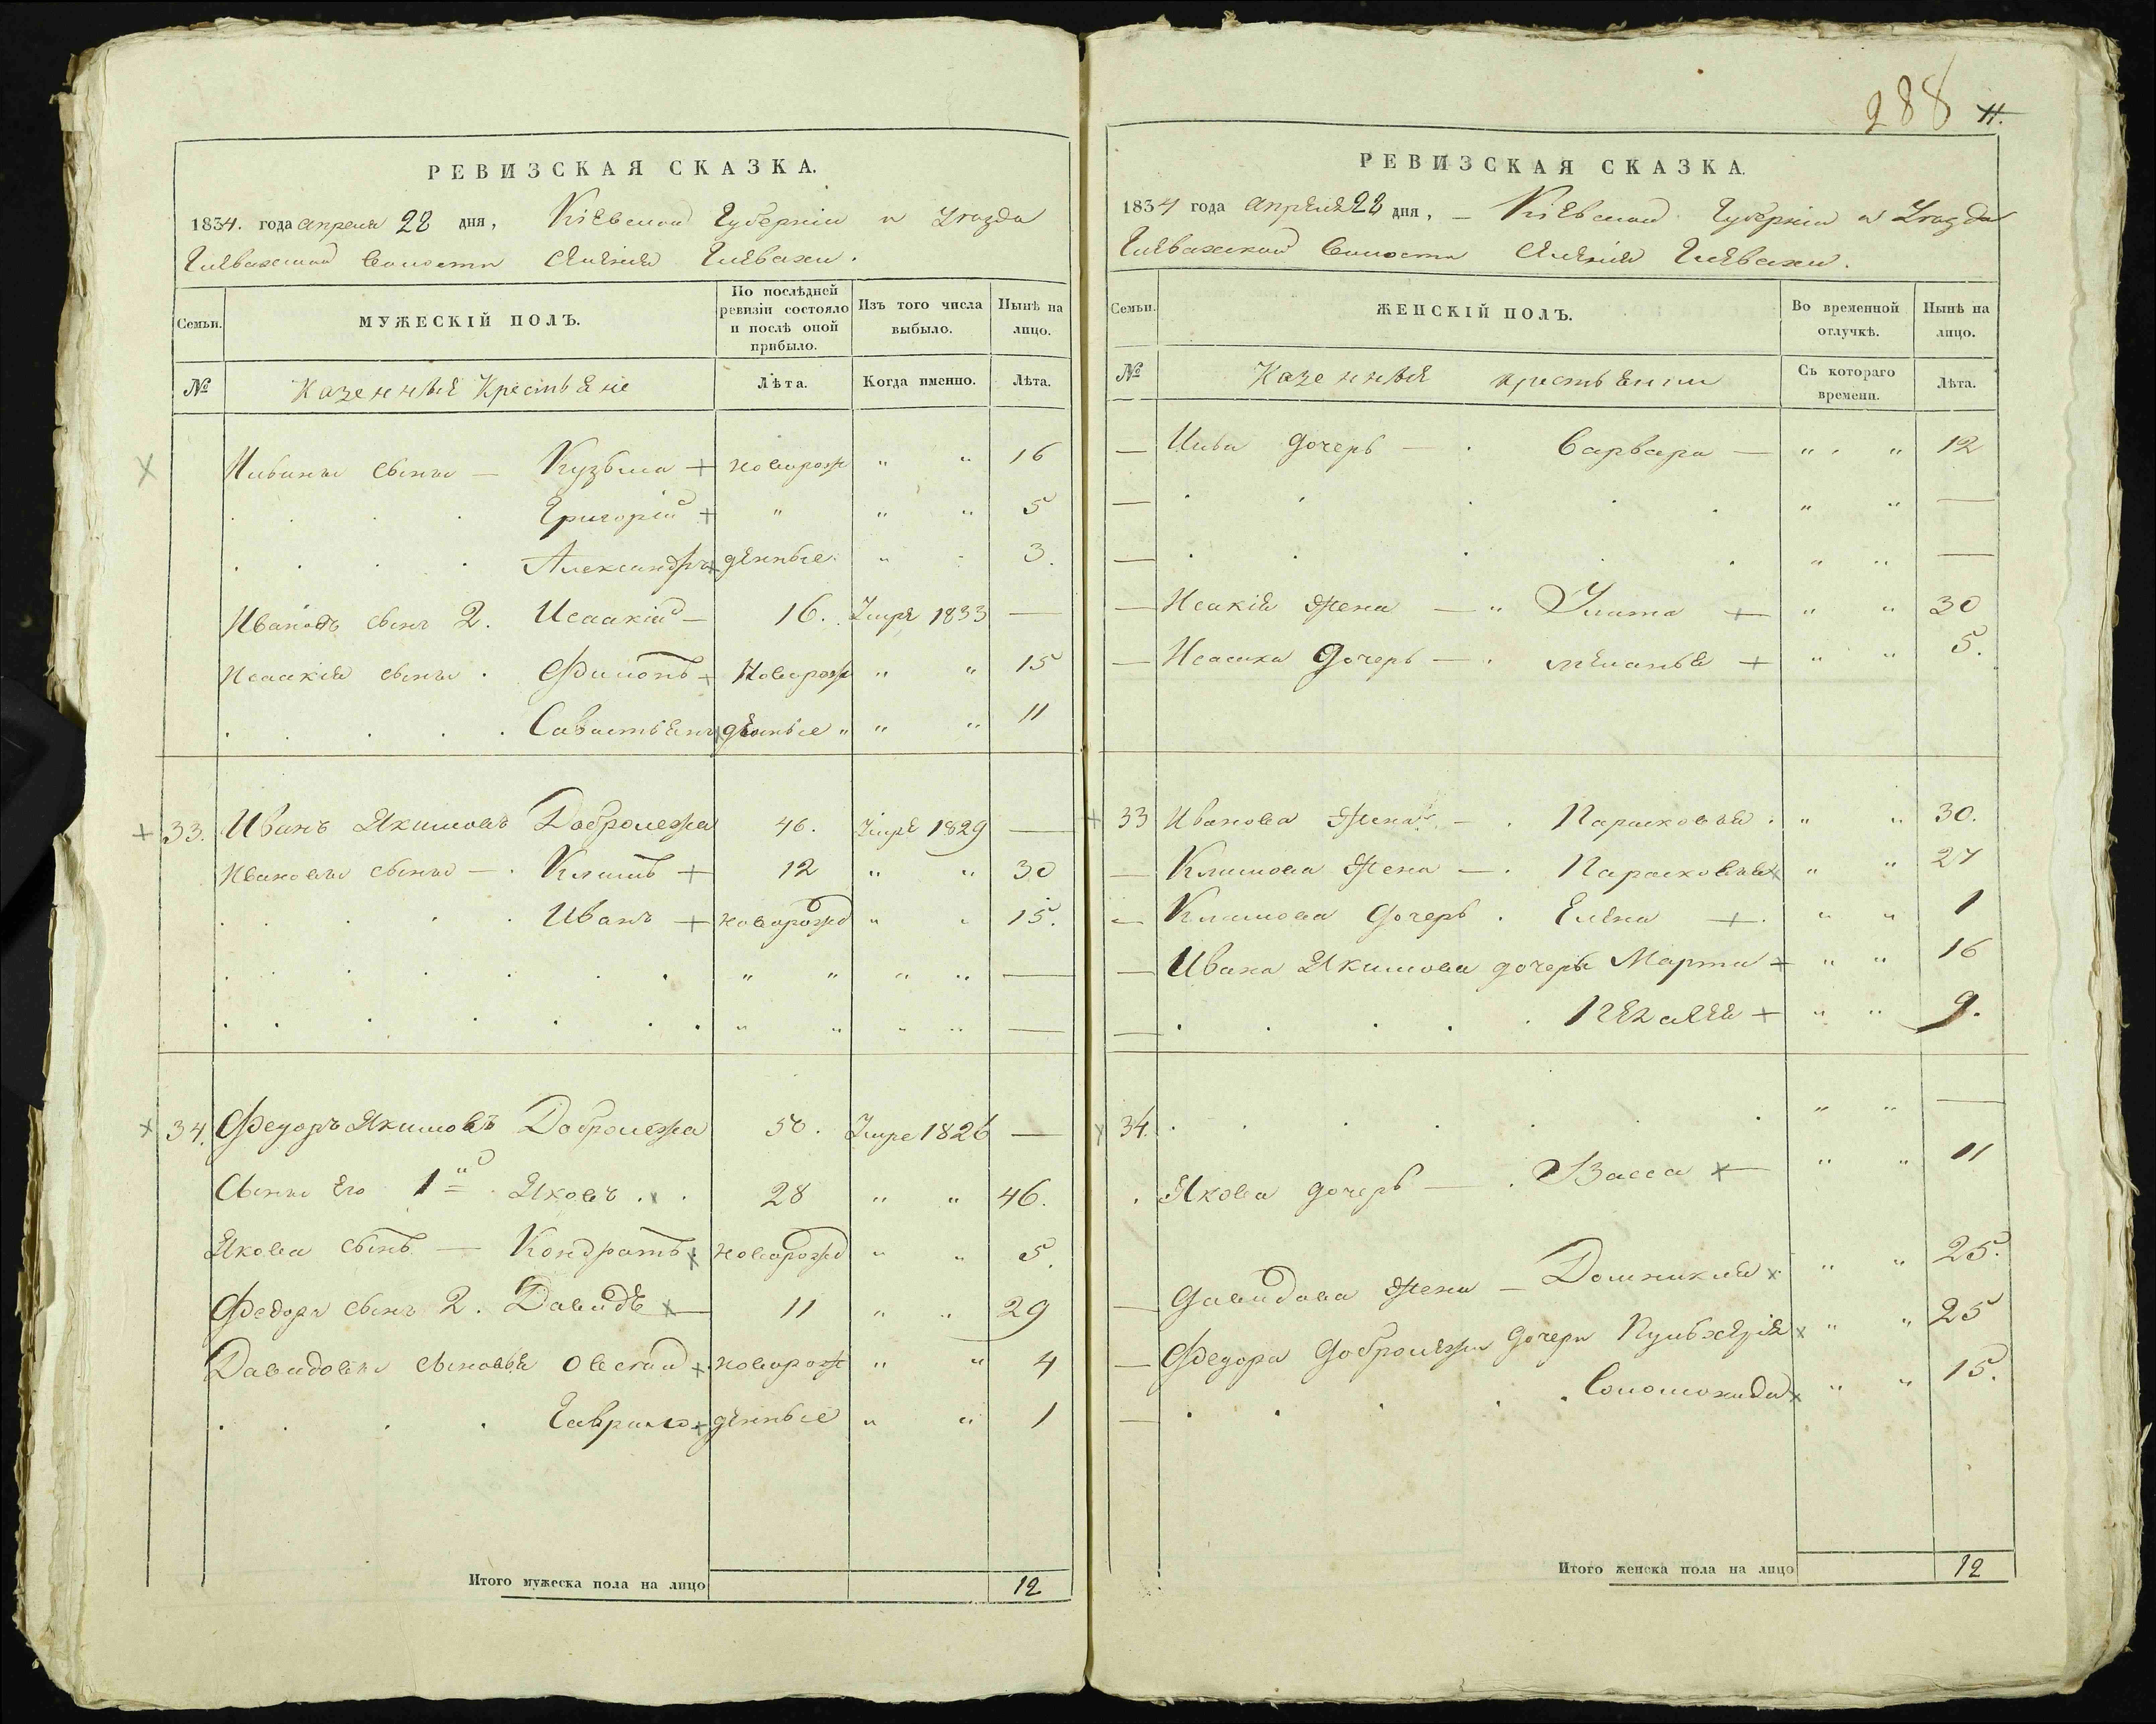 РЕВИЗСКАЯ СКАЗКА.
1834. года апреля 22 дня, Кіевской Губерніи и Уезда
Глевахской Волости Селенія Глевахи.
Семьи.
МУЖЕСКІЙ ПОЛЪ.
По послѣдней ревизіи состояло и послѣ оной прибыло.
Изъ того числа выбыло.
Нынѣ на лицо.
№
Казенныя Крестьяне
Лѣта.
Когда именно.
Лѣта.
сыны — Кузьма + новорож " " 16
Григорій + " " " 5
Александръ + денные " " 3.
Ивановъ сынъ 2. Исаакій — 16. Умре 1833 —
Исаакія сыны . Филонъ + Новорож " " 15
Савастьянъ + денные " " " 11
+ 33. Иванъ Якимовъ Доброшежа 46. Умре 1829 —
Ивановы сыны — . Климъ + 12 " " 30
Иванъ + новорожд " " 15.
" " " " —
" " " " —
x 34. Федоръ Якимовъ Доброшежа 50. Умре 1826 —
Сыны его 1й Яковъ . x . 28 " " 46.
Якова сынъ — Кондратъ x новорожд " " 5.
Федора сынъ 2. Давидъ x — 11 " " 29
Давидовы сыновья Овсій + новорож " " 4
Гаврило + денные " " 1
Итого мужеска пола на лицо 12
288 11.
РЕВИЗСКАЯ СКАЗКА.
1834 года апреля 22 дня, — Кіевской Губерніи и Уезда
Глевахской Волости Селенія Глевахи.
Семьи.
ЖЕНСКІЙ ПОЛЪ.
Во временной отлучкѣ.
Нынѣ на лицо.
№
Казенныя крестьянки
Съ котораго времени.
Лѣта.
— дочерь — . Варвара — " " 12
— " " —
— " " —
— Исакія жена — " Улита + " " 30
— Исаака Дочерь — . меланья + " " 5.
+ 33 Иванова жена — . Парасковья . " " 30.
— Климова жена — . Парасковья x " " 27
— Климова дочерь . Елена + . " " 1
— Ивана Якимова дочери Марта + " " 16
— Пекалея + " " 9.
" " —
x 34.
. Якова дочерь — . Васса x — " " 11
— Давидова жена — Домникия x " " 25.
— Федора Доброшежи дочери Пульхерія x " " 25
— . Соломонида x " " 15.
Итого женска пола на лицо 12